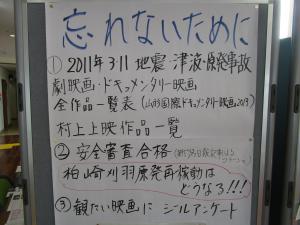 忘れないために
① 2011年3・11地震・津波・原発事故
劇映画・ドキュメンタリー映画
全作品一覧表(山形国際ドキュメンタリー映画2013)
村上上映作品一覧
② 安全審査合格
柏崎刈羽原発再稼動は
どうなる!!!
③ 観たい映画に シールアンケート